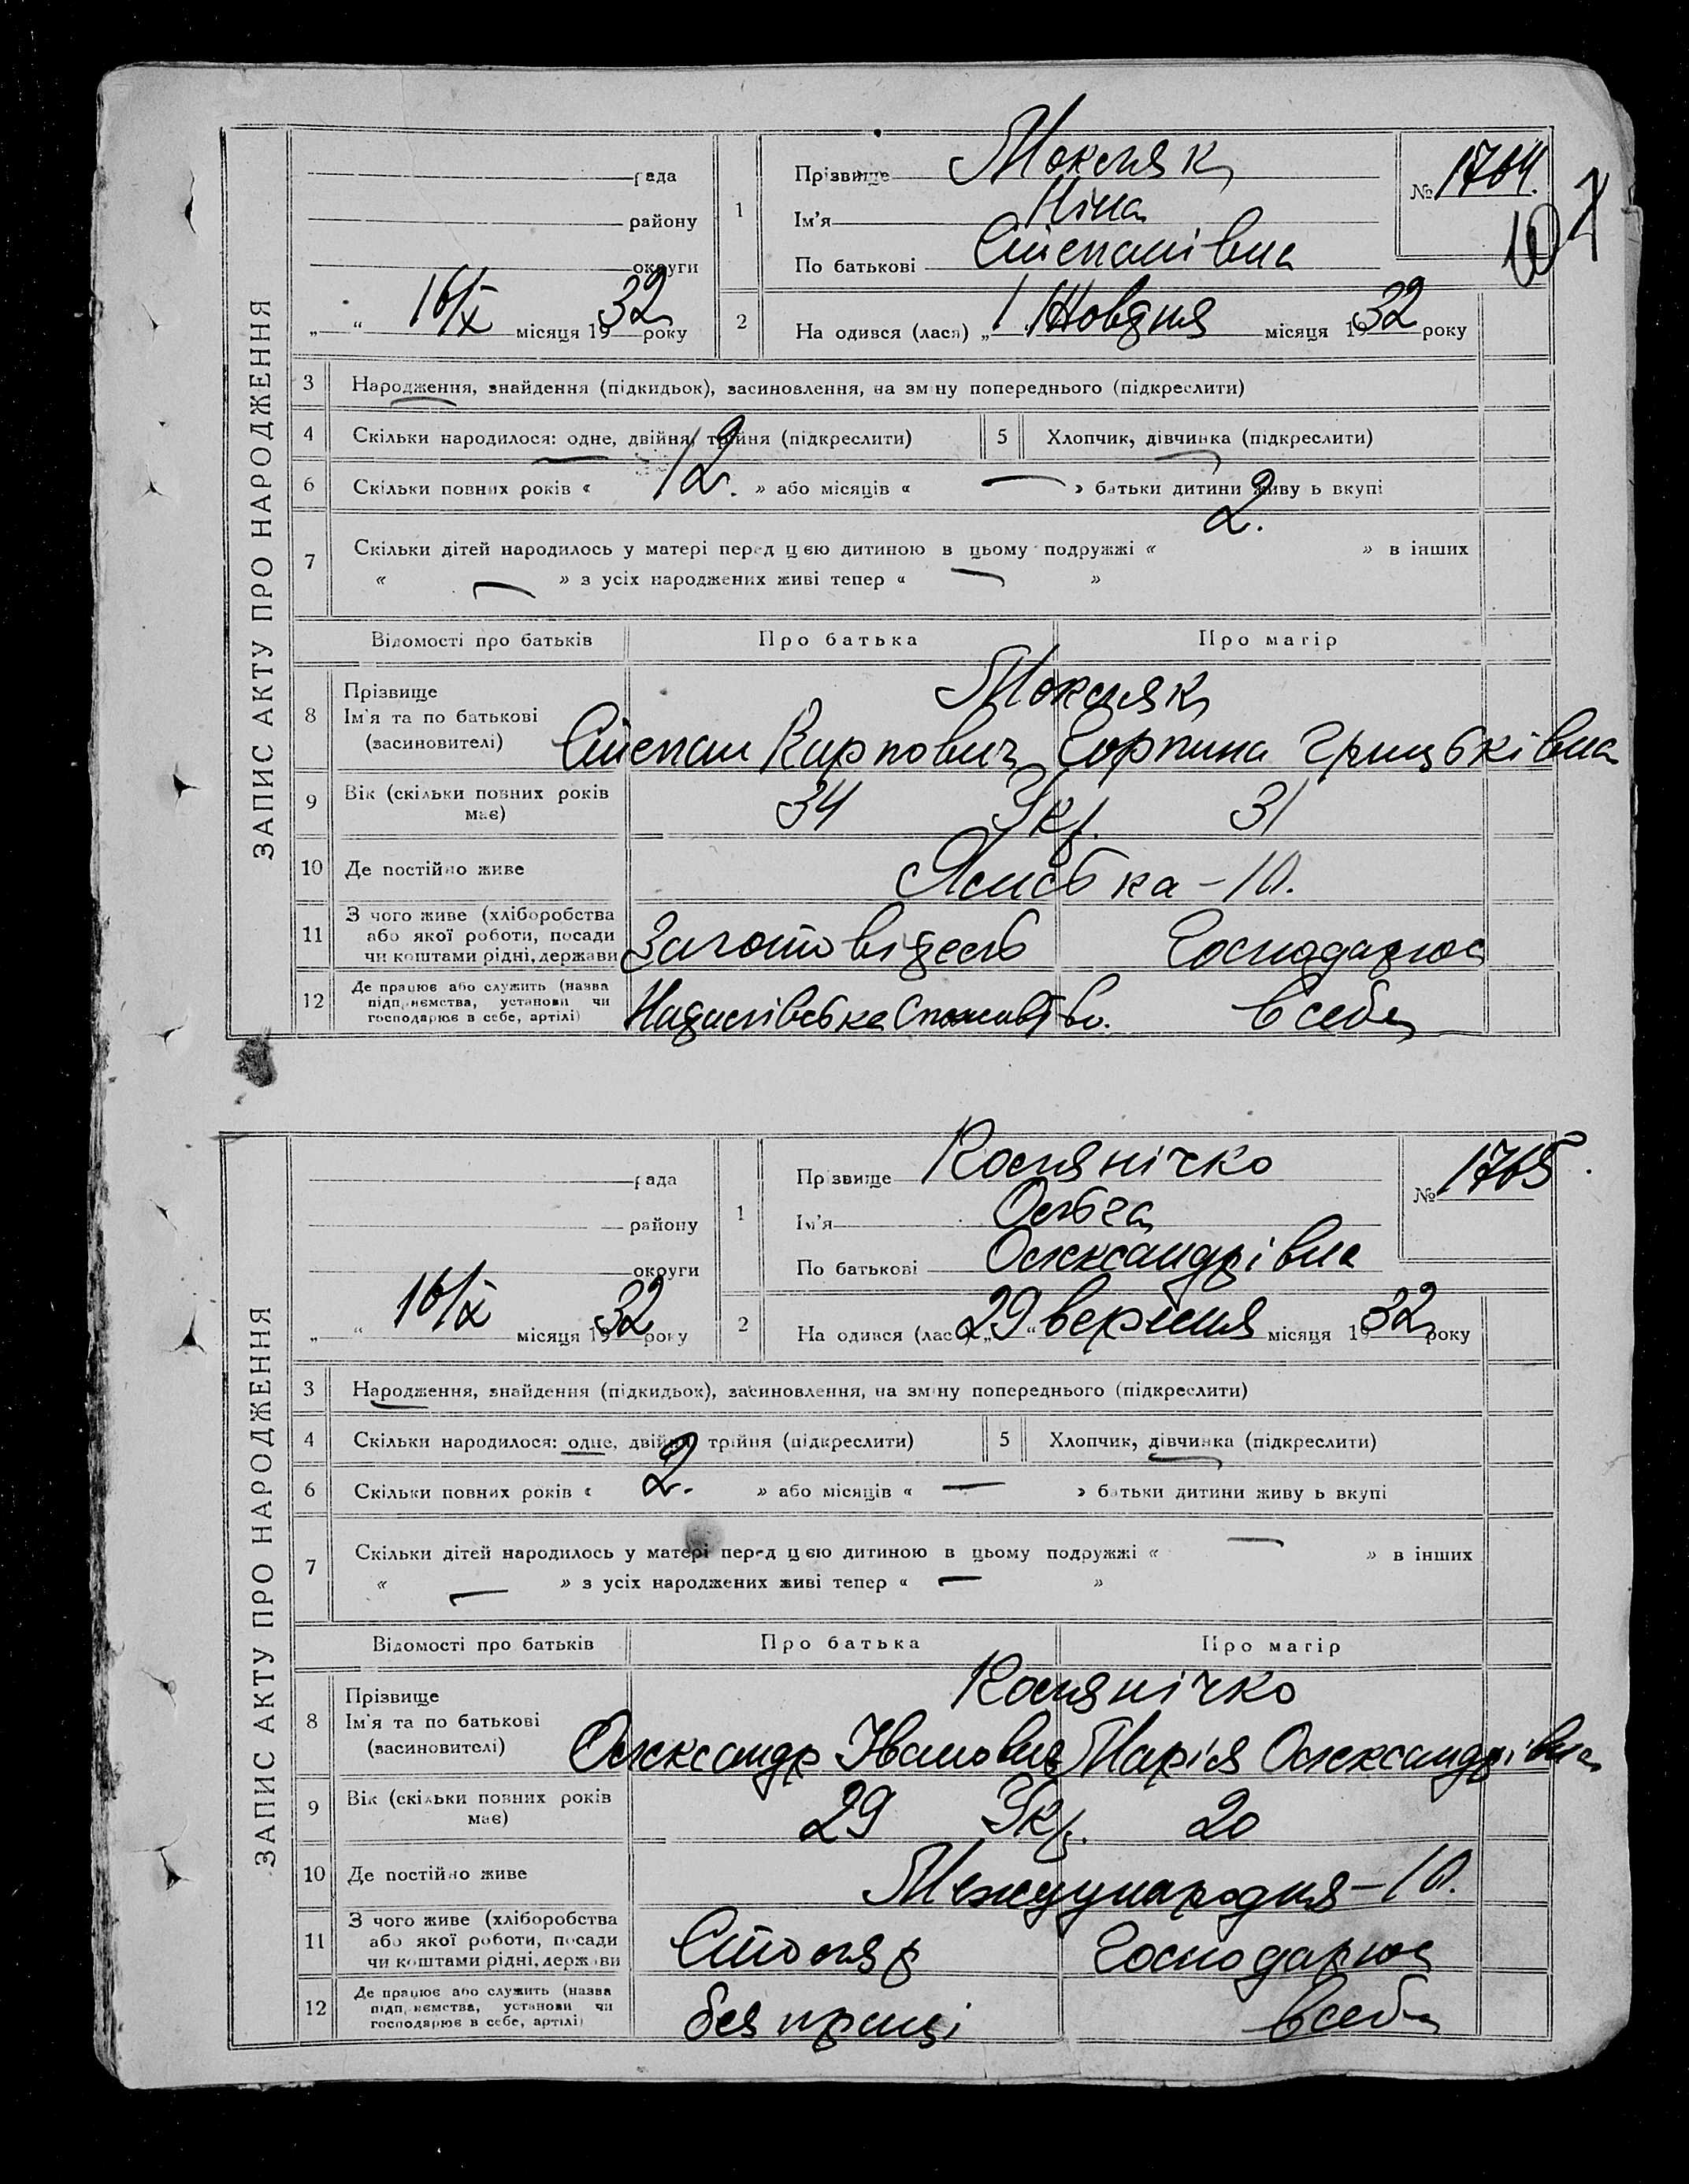 ЗАПИС АКТУ ПРО НАРОДЖЕННЯ
рада
району
округи
„ “ 16/X місяця 1932 року
1 Прізвище Мокляк
Ім'я Ніна
По батькові Степанівна
№ 1764.
107
2 На одився (лася) „1“ Жовтня місяця 1932 року
3 Народження, знайдення (підкидьок), засиновлення, на зміну попереднього (підкреслити)
4 Скільки народилося: одне, двійня, трійня (підкреслити) 5 Хлопчик, дівчинка (підкреслити)
6 Скільки повних років « 12. » або місяців « — » батьки дитини живу ь вкупі
7 Скільки дітей народилось у матері перед цією дитиною в цьому подружжі « 2. » в інших
« — » з усіх народжених живі тепер « — »
Відомості про батьків Про батька Про матір
8 Прізвище Ім'я та по батькові (засиновителі) Мокляк
Степан Карпович Горпина Грицьківна
9 Вік (скільки повних років має) 34 Укр. 31
10 Де постійно живе -10.
11 З чого живе (хліборобства або якої роботи, посади чи коштами рідні, держави Господарює
12 Де працює або служить (назва підприємства, установи чи господарює в себе, артілі) в себе
ЗАПИС АКТУ ПРО НАРОДЖЕННЯ
рада
району
округи
„ “ 16/X місяця 1932 року
1 Прізвище Колянічко
Ім'я Ольга
По батькові Олександрівна
№ 1765.
2 На одився (лася) „29“ вересня місяця 1932 року
3 Народження, знайдення (підкидьок), засиновлення, на зміну попереднього (підкреслити)
4 Скільки народилося: одне, двійня, трійня (підкреслити) 5 Хлопчик, дівчинка (підкреслити)
6 Скільки повних років « 2. » або місяців « — » батьки дитини живу ь вкупі
7 Скільки дітей народилось у матері перед цією дитиною в цьому подружжі « — » в інших
« — » з усіх народжених живі тепер « — »
Відомості про батьків Про батька Про матір
8 Прізвище Ім'я та по батькові (засиновителі) Колянічко
Олександр Іванович Марія Олександрівна
9 Вік (скільки повних років має) 29 Укр. 20
10 Де постійно живе Международня-10.
11 З чого живе (хліборобства або якої роботи, посади чи коштами рідні, держави Столяр Господарює
12 Де працює або служить (назва підприємства, установи чи господарює в себе, артілі) без праці в себе